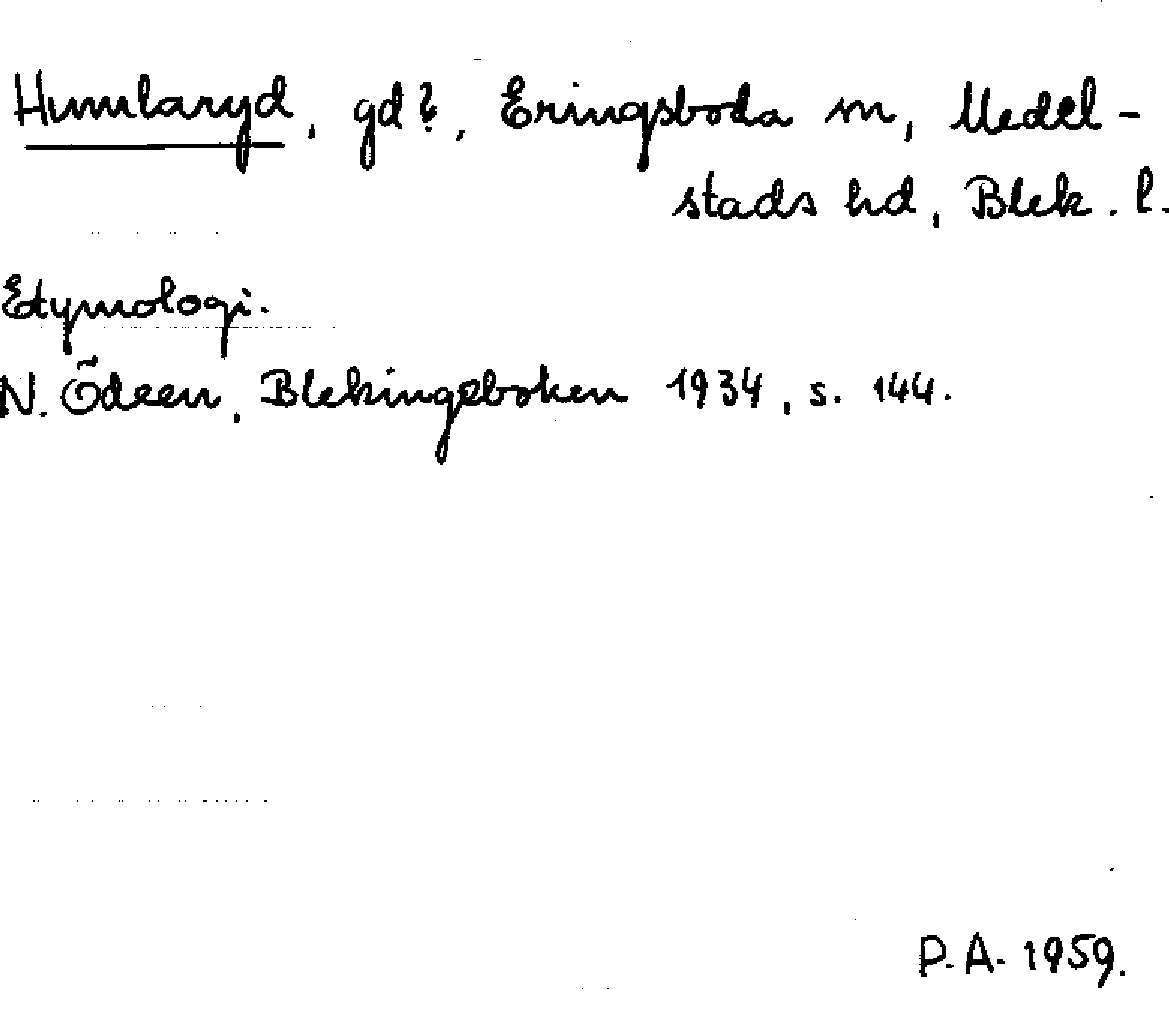 Humlaryd, gd?, Eringsboda sn, Medel-
stads hd, Blek. l.
Etymologi.
N. Ödeen, Blekingeboken 1934, s. 144.
P.A. 1959.